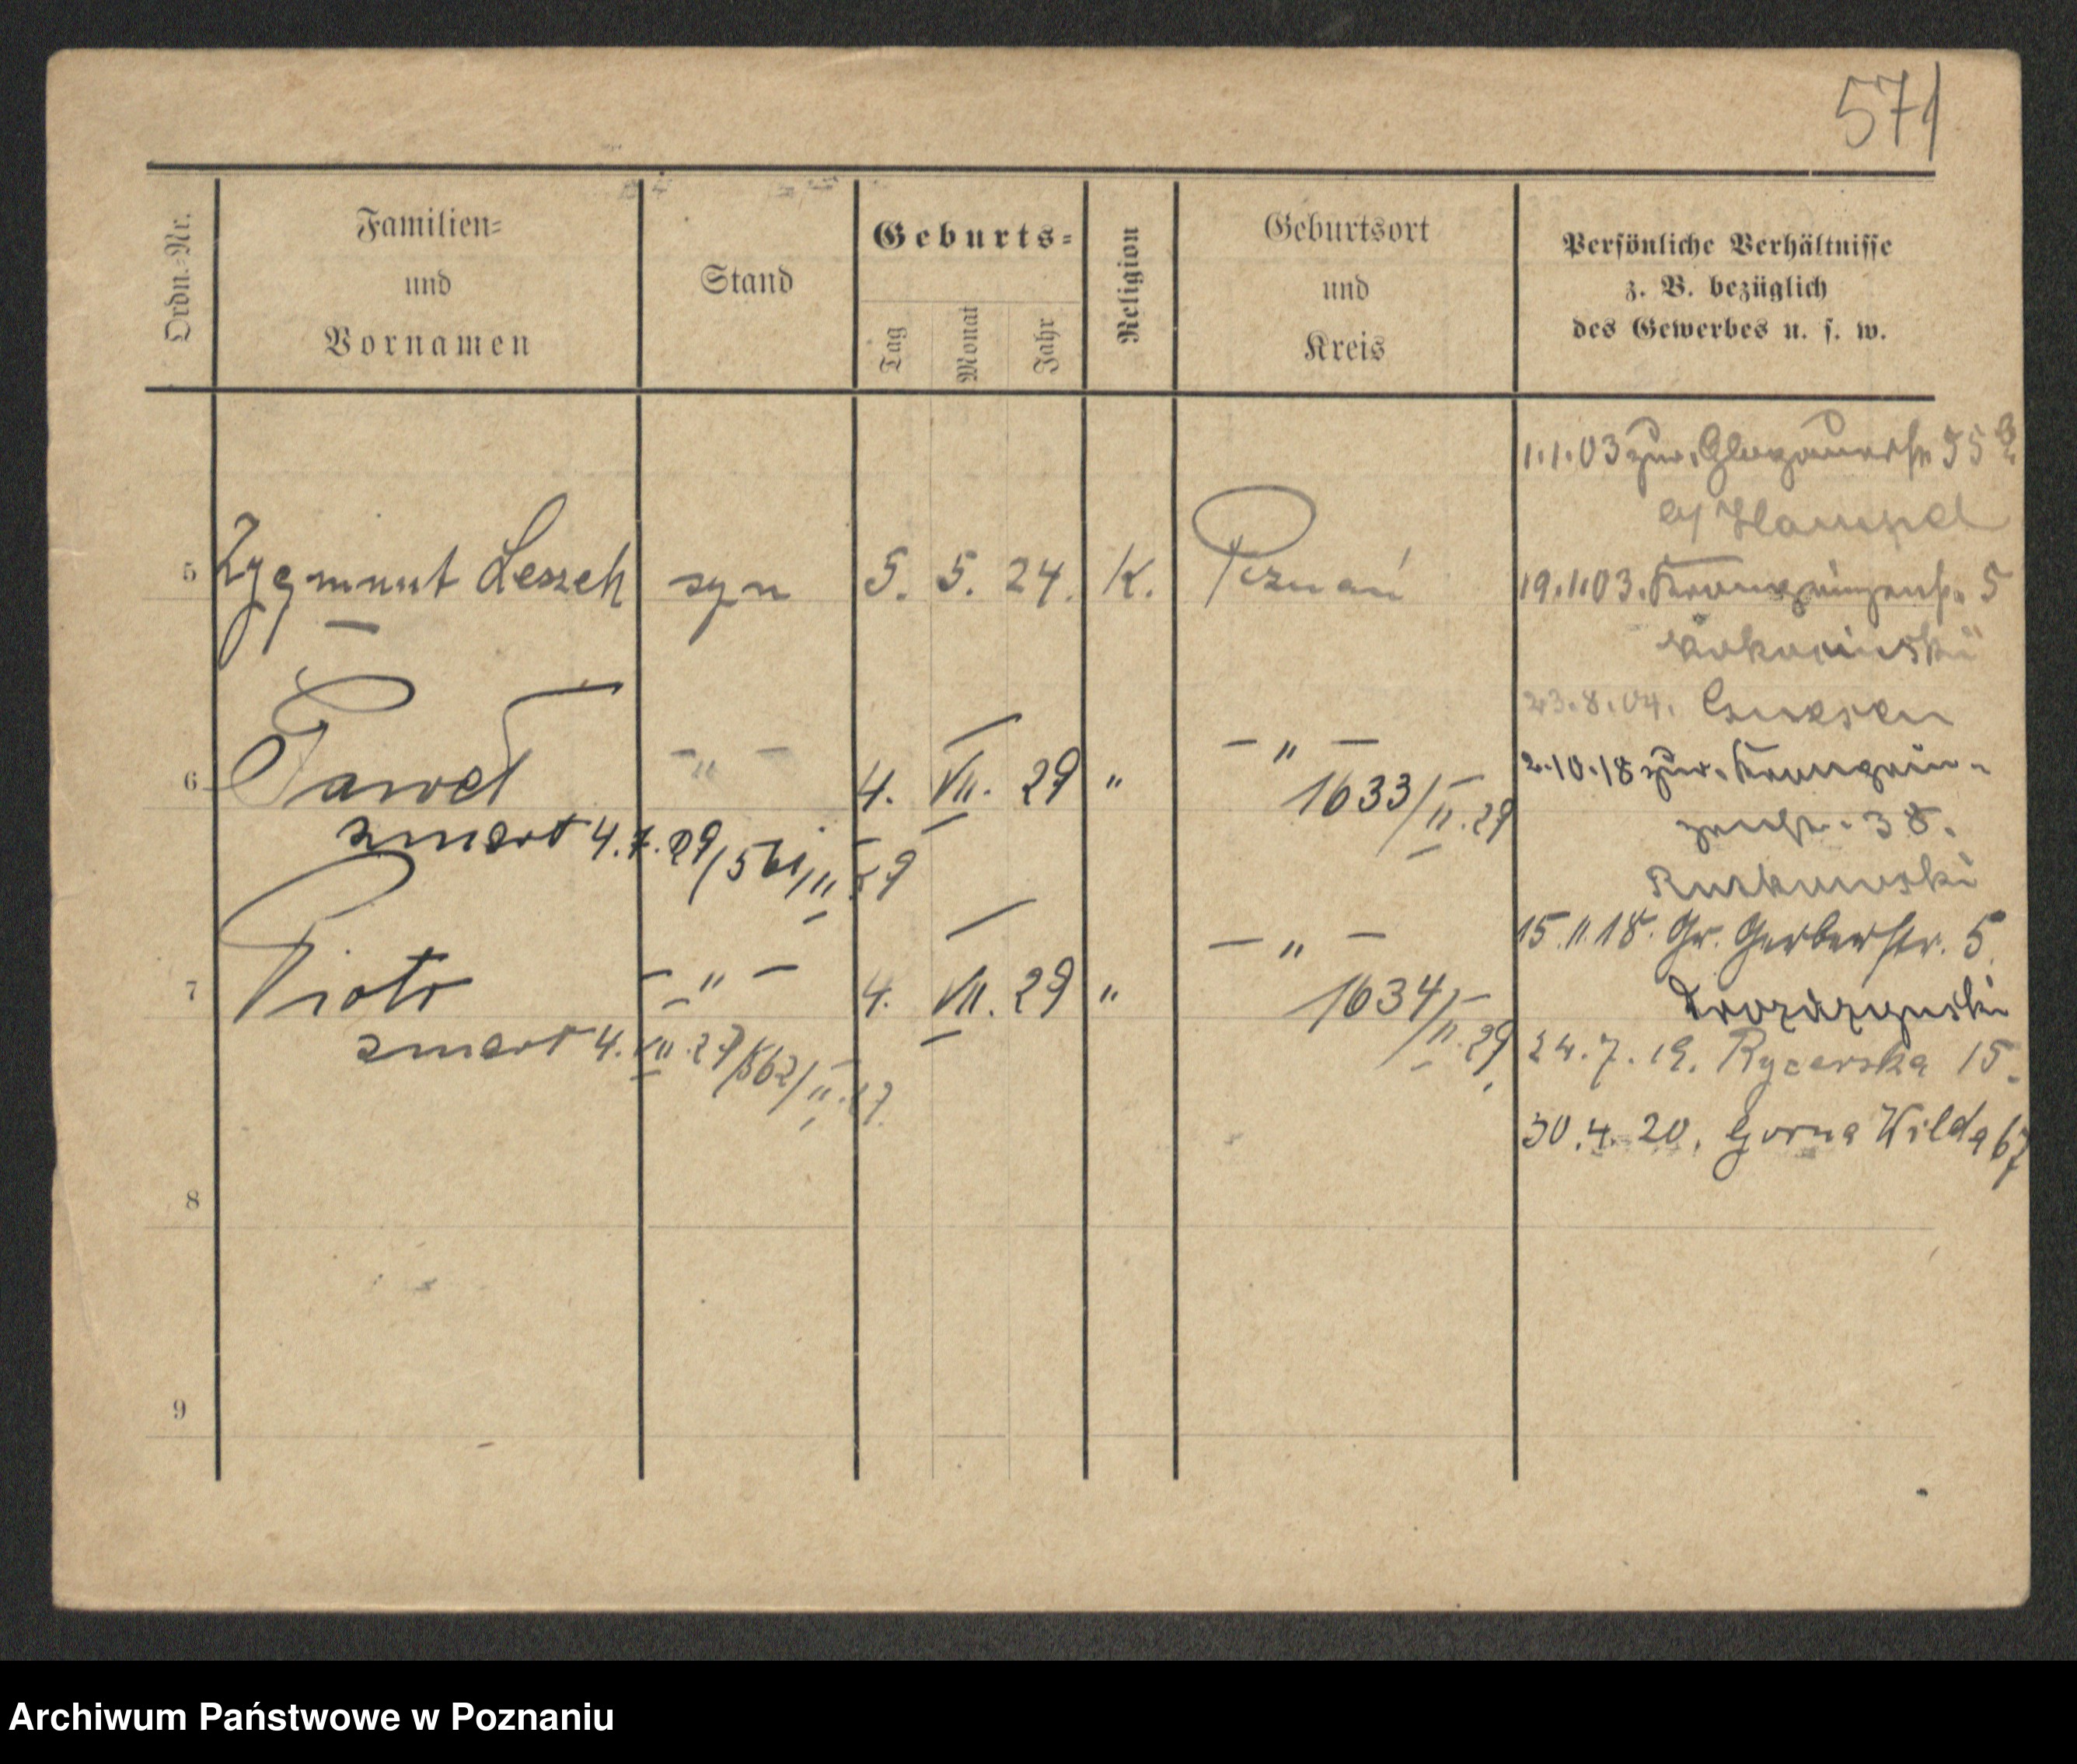 571
Ordn.-Nr.
Familien-
und
Vornamen
Stand
Geburts-
Tag
Monat
Jahr
Religion
Geburtsort
und
Kreis
Persönliche Verhältnisse
z. B. bezüglich
des Gewerbes u. s. w.
5 Zygmunt Leszek syn 5. 5. 24. K. Poznań
6 Paweł -"- 4. VII. 29 " -"-
1633/II.29
zmarł 4.7.29/561/II 29
7 Piotr -"- 4. VII. 29 " -"-
1634/II.29
zmarł 4.VII.29/562/II.
8
9
1.1.03 zur. Glogauerstr. 55
19.1.03. Kronprinzenstr. 5
23.8.04. Gnesen
2.10.18 zur. Kronprin-
zenstr. 38.
15.11.18. Gr. Gerberstr. 5.
24.7.19. Rycerska 15.
30.4.20. Gorna Wilda 67
Archiwum Państwowe w Poznaniu